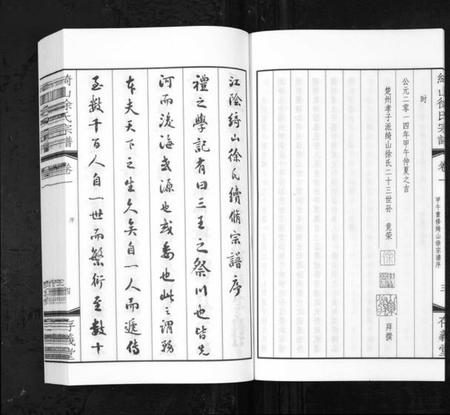 時
公元二〇一四年甲午仲夏之吉
楚州孝子派綺山徐氏二十三世孫 竟榮
拜撰
綺山徐氏宗譜
卷一
甲午重修綺山徐宗譜序
三
存義堂
江陰綺山徐氏續脩宗譜序
禮之學記有曰三王之祭川也皆先
河而後海或源也或委也此之謂務
本夫天下之生久矣自一人而遞傳
至數千百人自一世而繁衍至數十
綺山徐氏宗譜
卷一
序
存義堂